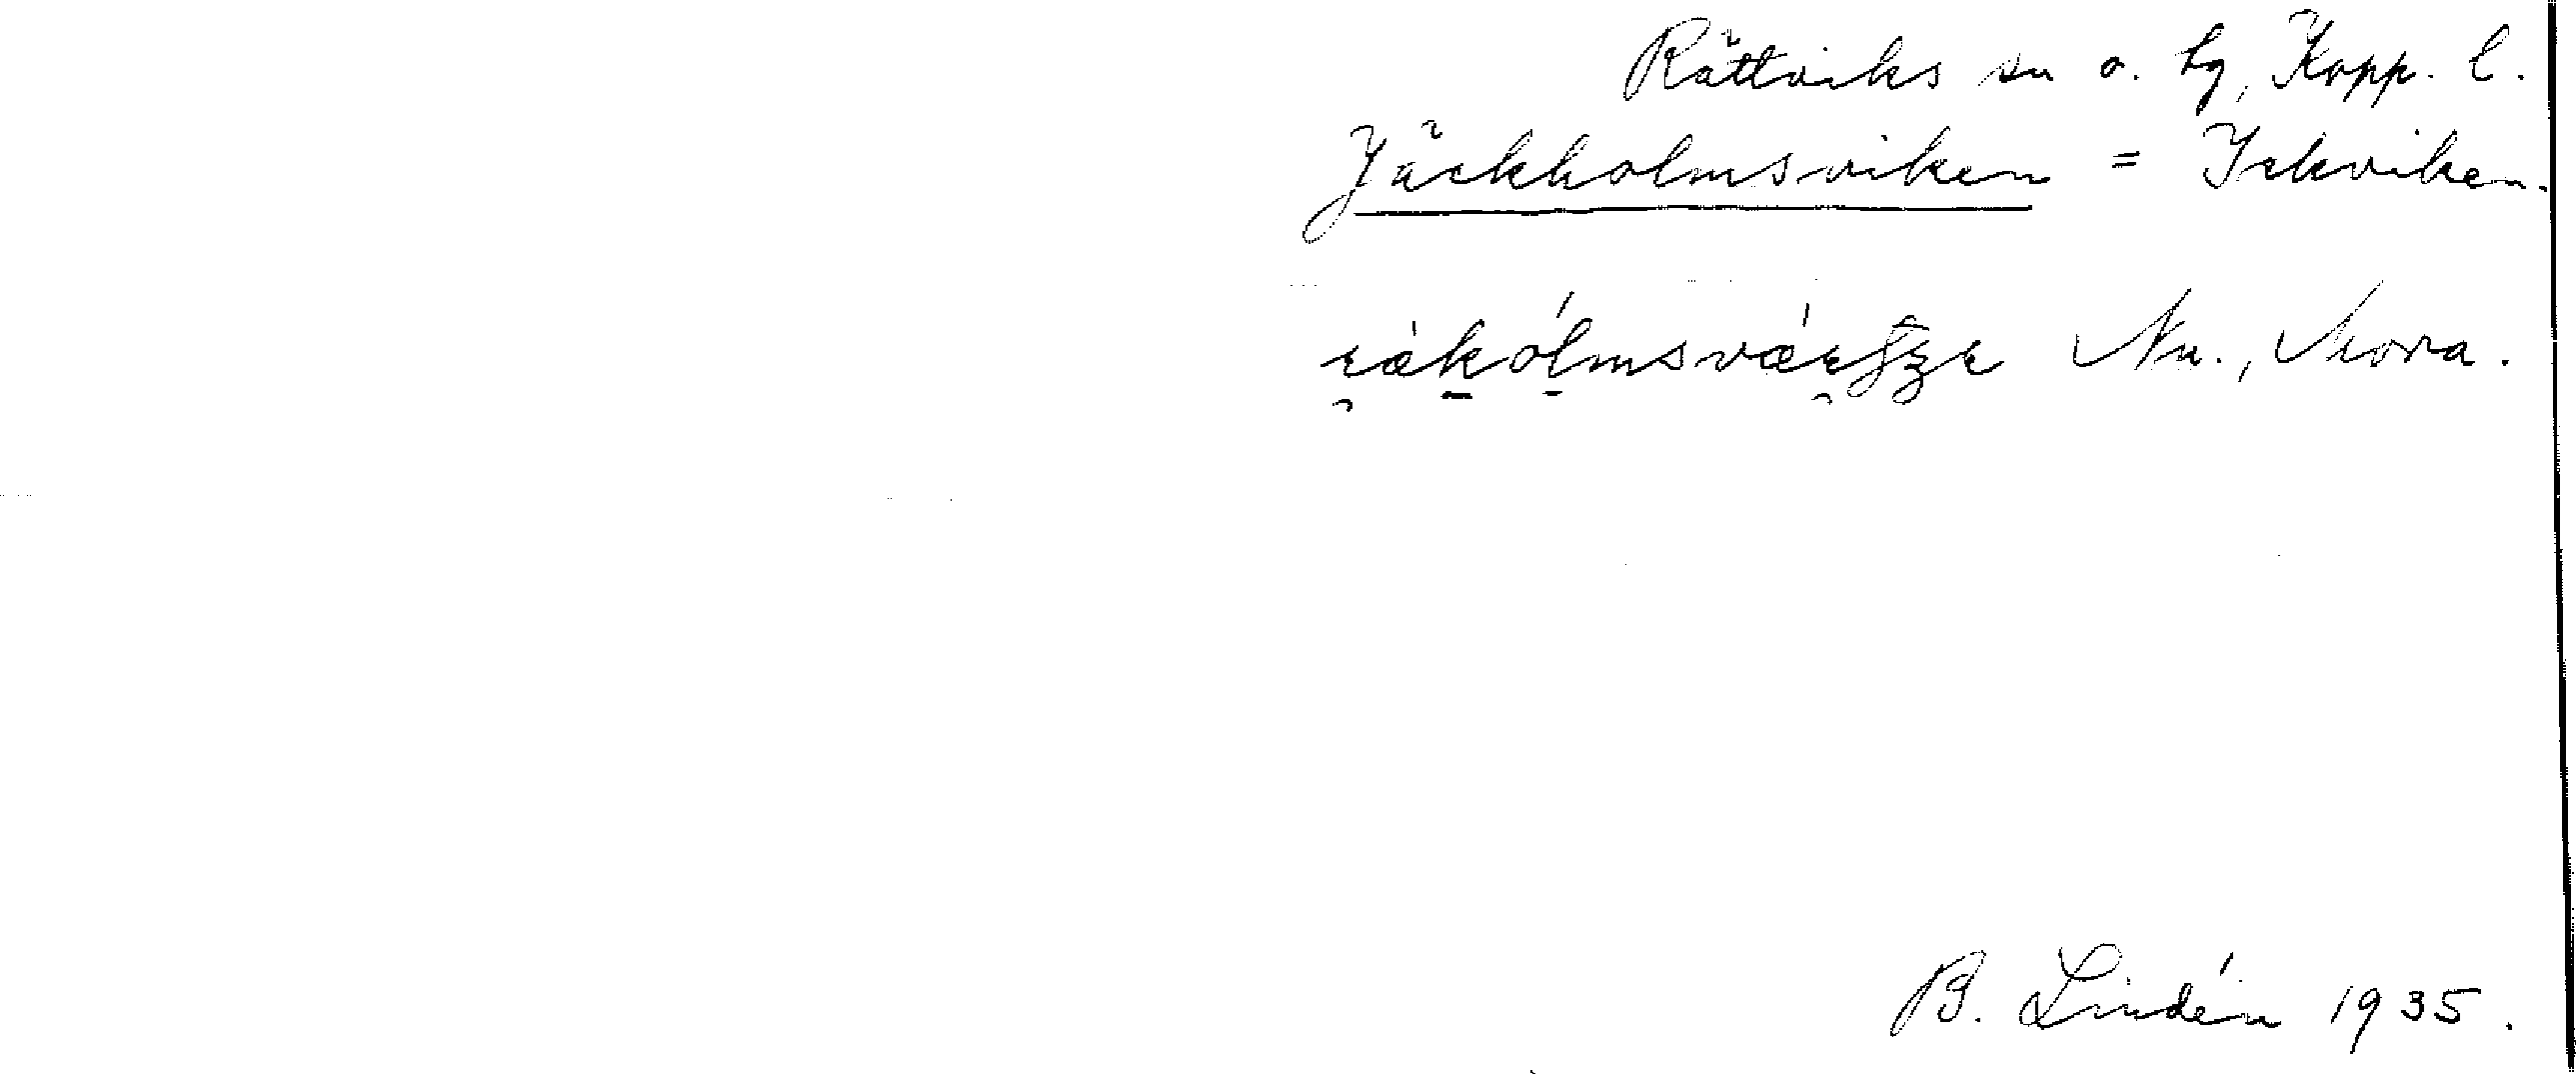 Rättviks sn o. hg, Kopp. l.
Jäckholmsviken = Ickviken.
Nu., Mora.
B. Lindén 1935.